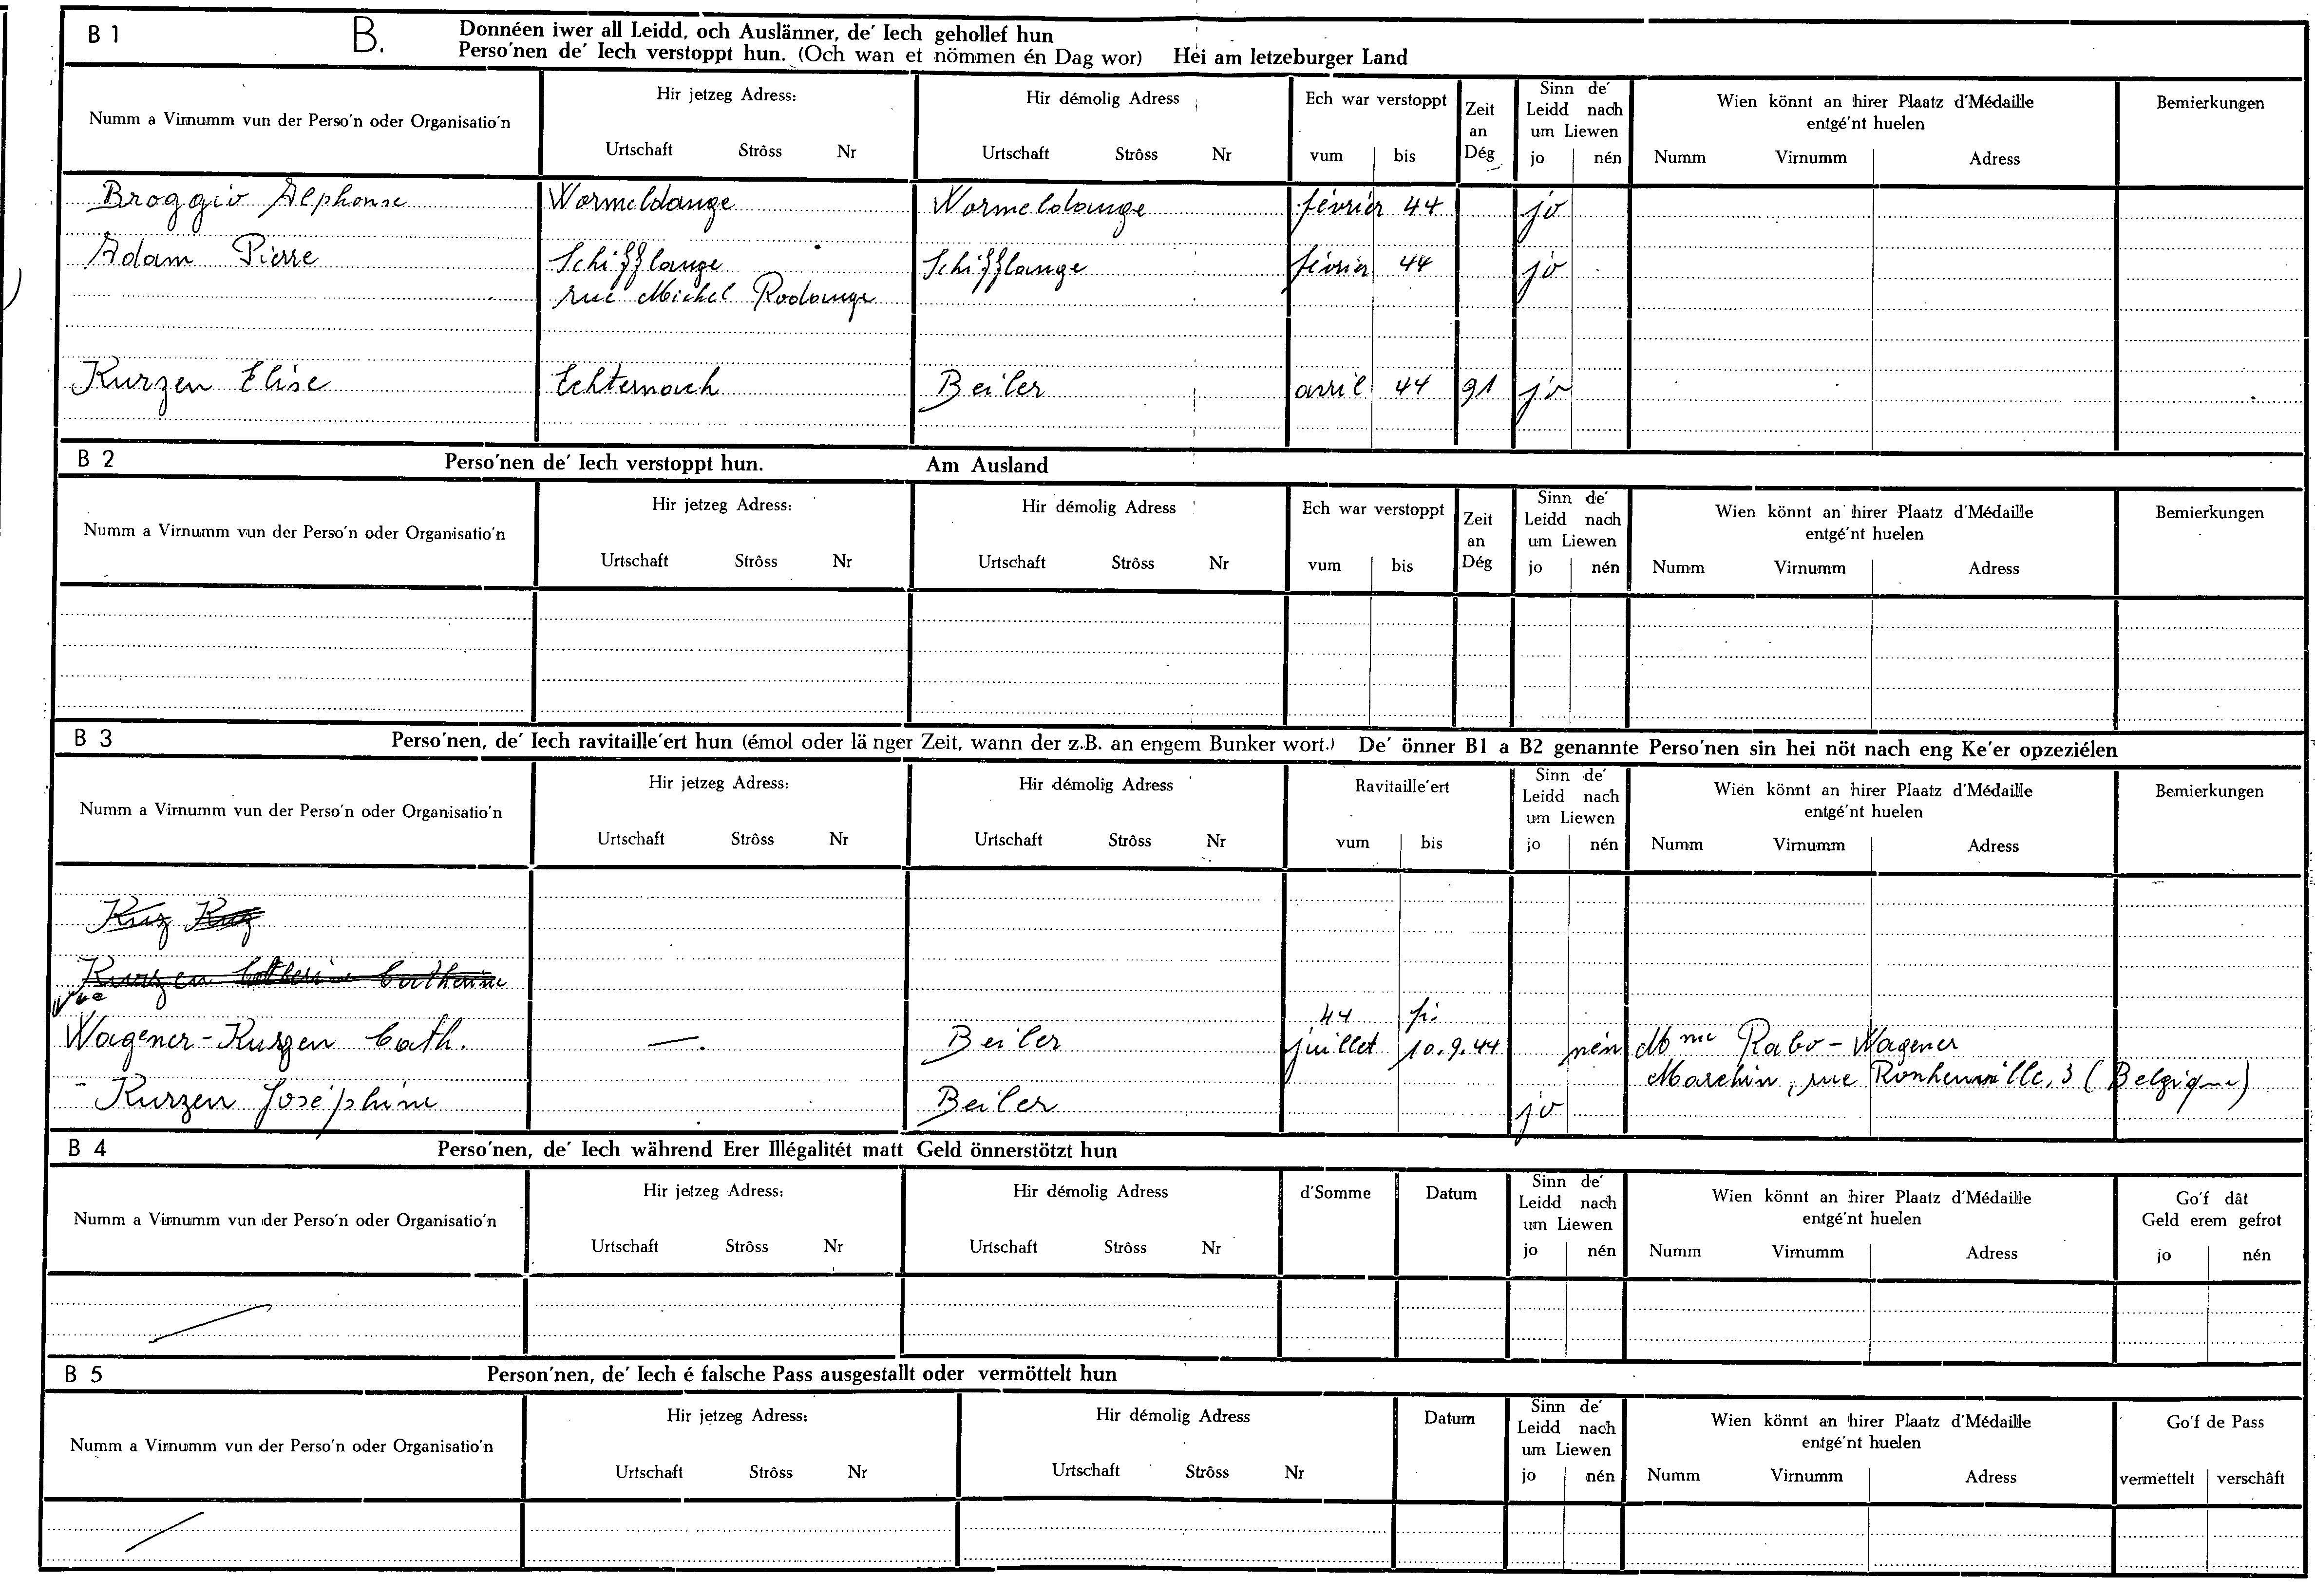 B 1 B. Donnéen iwer all Leidd, och Auslänner, de' Iech gehollef hun
Perso'nen de' Iech verstoppt hun. (Och wan et nömmen én Dag wor) Héi am letzeburger Land
Numm a Virnumm vun der Perso'n oder Organisatio'n
Hir jetzeg Adress:
Urtschaft Strôss Nr
Hir démolig Adress
Urtschaft Strôss Nr
Ech war verstoppt
vum bis
Zeit
an
Dég
Sinn de'
Leidd nach
um Liewen
jo nén
Wien könnt an hirer Plaatz d'Médaille
entgé'nt huelen
Numm Virnumm Adress
Bemierkungen
Broggio Alphonse Wormeldange Wormeldange février 44 jo
Adam Pierre Schifflange Schifflange février 44 jo
rue Michel Rodange
Kurzen Elise Echternach Beiler avril 44 91 jo
B 2 Perso'nen de' Iech verstoppt hun. Am Ausland
Numm a Virnumm vun der Perso'n oder Organisatio'n
Hir jetzeg Adress:
Urtschaft Strôss Nr
Hir démolig Adress
Urtschaft Strôss Nr
Ech war verstoppt
vum bis
Zeit
an
Dég
Sinn de'
Leidd nach
um Liewen
jo nén
Wien könnt an hirer Plaatz d'Médaille
entgé'nt huelen
Numm Virnumm Adress
Bemierkungen
B 3 Perso'nen, de' Iech ravitaille'ert hun (émol oder länger Zeit, wann der z.B. an engem Bunker wort.) De' önner B1 a B2 genannte Perso'nen sin hei nöt nach eng Ke'er opzeziélen
Numm a Virnumm vun der Perso'n oder Organisatio'n
Hir jetzeg Adress:
Urtschaft Strôss Nr
Hir démolig Adress
Urtschaft Strôss Nr
Ravitaille'ert
vum bis
Sinn de'
Leidd nach
um Liewen
jo nén
Wien könnt an hirer Plaatz d'Médaille
entgé'nt huelen
Numm Virnumm Adress
Bemierkungen
Kurz Kurz
Kurzen Catherine Catherine
Vve 44
Wagener-Kurzen Cath. —. Beiler juillet 10.9.44 nén Mme Rabo-Wagener
Marchin, rue 3 (Belgique)
- Kurzen Joséphine Beiler jo
B 4 Perso'nen, de' Iech während Erer Illégalitét matt Geld önnerstötzt hun
Numm a Virnumm vun der Perso'n oder Organisatio'n
Hir jetzeg Adress:
Urtschaft Strôss Nr
Hir démolig Adress
Urtschaft Strôss Nr
d'Somme
Datum
Sinn de'
Leidd nach
um Liewen
jo nén
Wien könnt an hirer Plaatz d'Médaille
entgé'nt huelen
Numm Virnumm Adress
Go'f dât
Geld erem gefrot
jo nén
B 5 Person'nen, de' Iech é falsche Pass ausgestallt oder vermöttelt hun
Numm a Virnumm vun der Perso'n oder Organisatio'n
Hir jetzeg Adress:
Urtschaft Strôss Nr
Hir démolig Adress
Urtschaft Strôss Nr
Datum
Sinn de'
Leidd nach
um Liewen
jo nén
Wien könnt an hirer Plaatz d'Médaille
entgé'nt huelen
Numm Virnumm Adress
Go'f de Pass
vermettelt verschâft